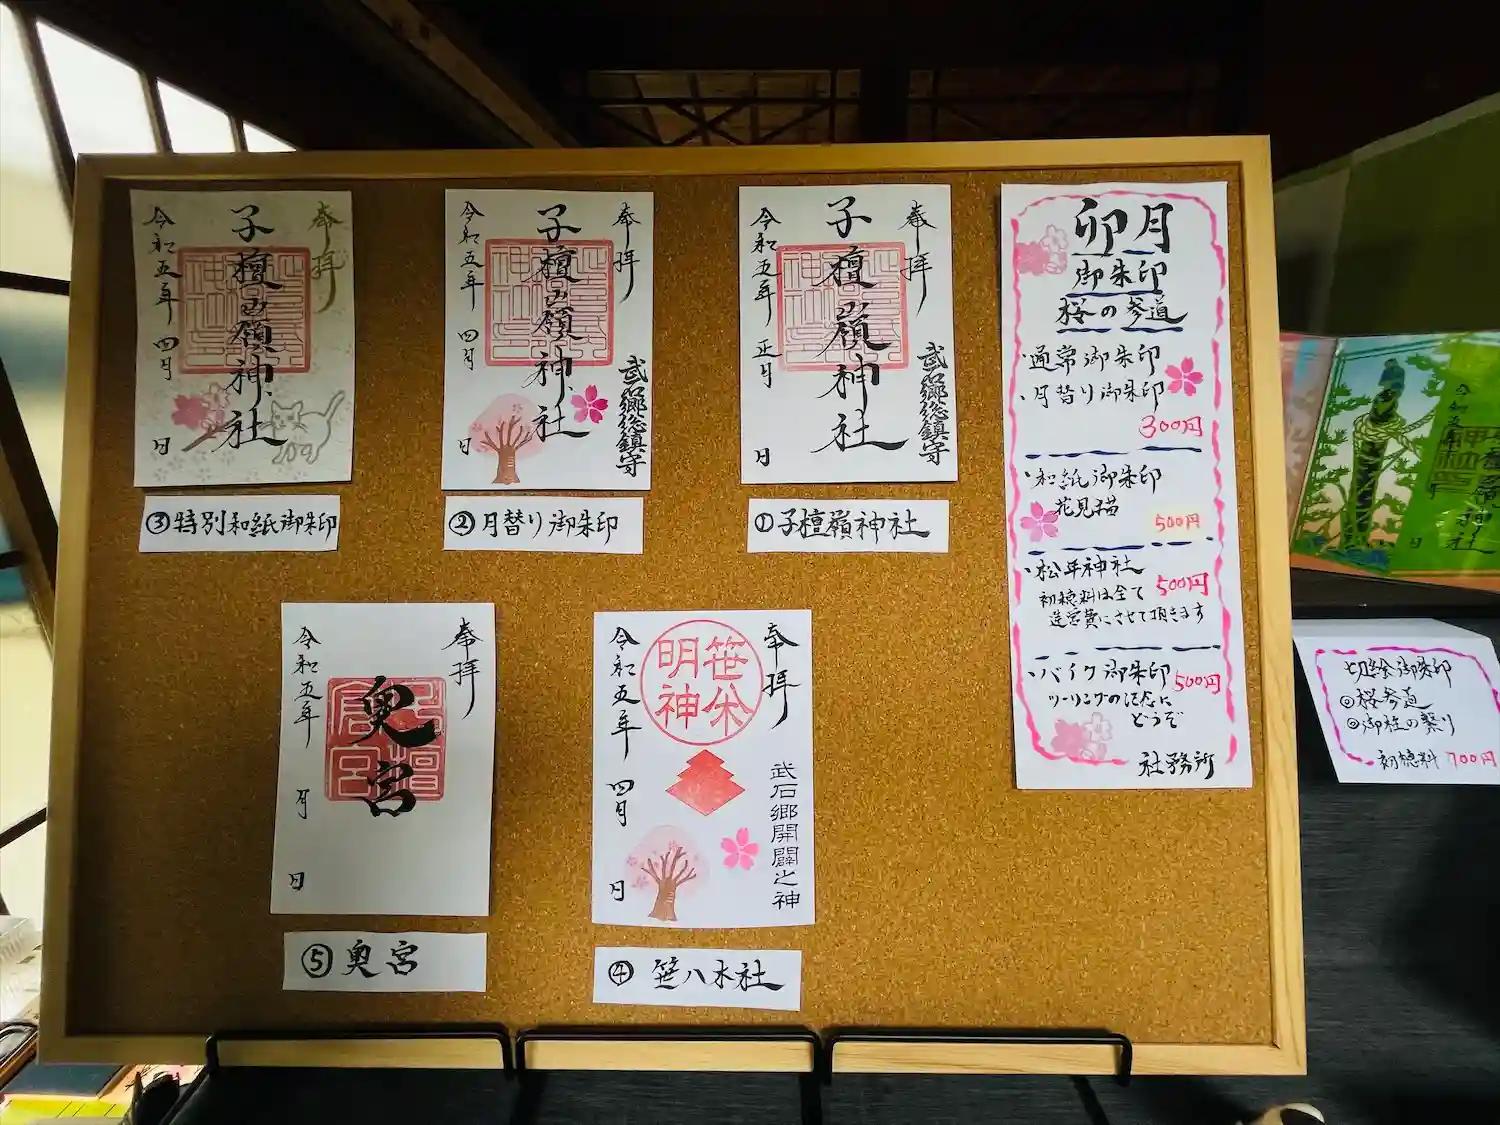 奉拝
子檀嶺神社
令和五年 四月 日
③特別和紙御朱印
奉拝
子檀嶺神社
武石郷総鎮守
令和五年 四月 日
②月替り御朱印
奉拝
子檀嶺神社
武石郷総鎮守
令和五年 正月 日
①子檀嶺神社
奉拝
奥宮
令和五年 月 日
⑤奥宮
奉拝
笹焼
明神
武石郷開闢之神
令和五年 四月 日
④笹八木社
卯月
御朱印
桜の参道
・通常御朱印
・月替り御朱印
300円
・和紙御朱印
花見猫
500円
・松年神社
500円
初穂料は全て
造営費にさせて頂きます
・バイク御朱印
500円
ツーリングの記念に
どうぞ
社務所
切絵御朱印
◎桜参道
◎御柱の祭り
初穂料 700円